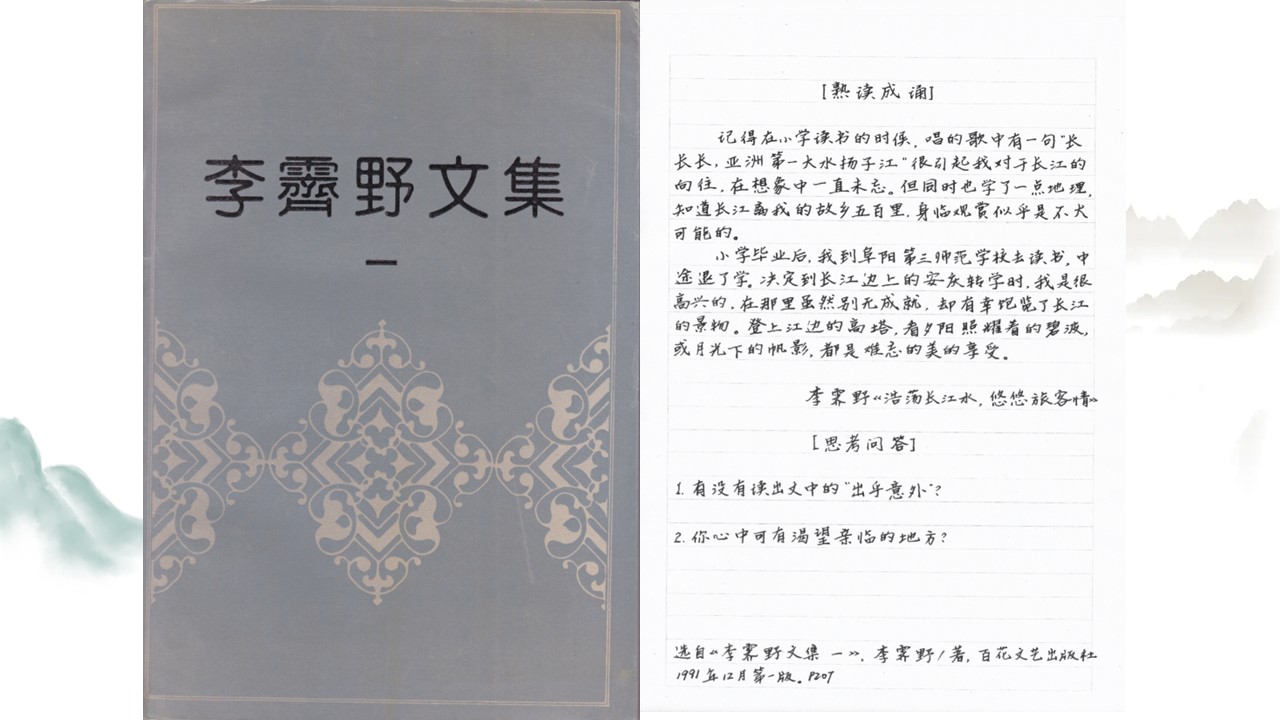 李霽野文集
一
[熟读成诵]
记得在小学读书的时候，唱的歌中有一句“长
长长，亚洲第一大水扬子江”很引起我对于长江的
向往，在想象中一直未忘。但同时也学了一点地理，
知道长江离我的故乡五百里，身临观赏似乎是不大
可能的。
小学毕业后，我到阜阳第三师范学校去读书，中
途退了学。决定到长江边上的安庆转学时，我是很
高兴的，在那里虽然别无成就，却有幸饱览了长江
的景物。登上江边的高塔，看夕阳照耀着的碧波，
或月光下的帆影，都是难忘的美的享受。
李霁野《浩荡长江水，悠悠旅客情》
[思考问答]
1. 有没有读出文中的“出乎意外”？
2. 你心中可有渴望亲临的地方？
选自《李霁野文集 一》，李霁野/著，百花文艺出版社
1991年12月第一版。P207